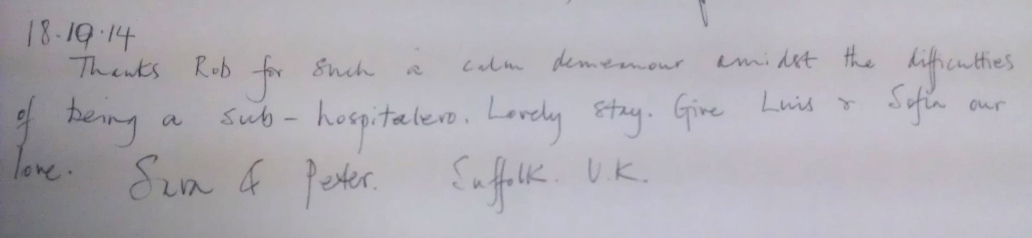 18.10.14
Thanks Rob for such a calm demeanour amidst the difficulties
of being a sub-hospitalero. Lovely stay. Give Luis & Sofia our
love. Sara & Peter. Suffolk. U.K.